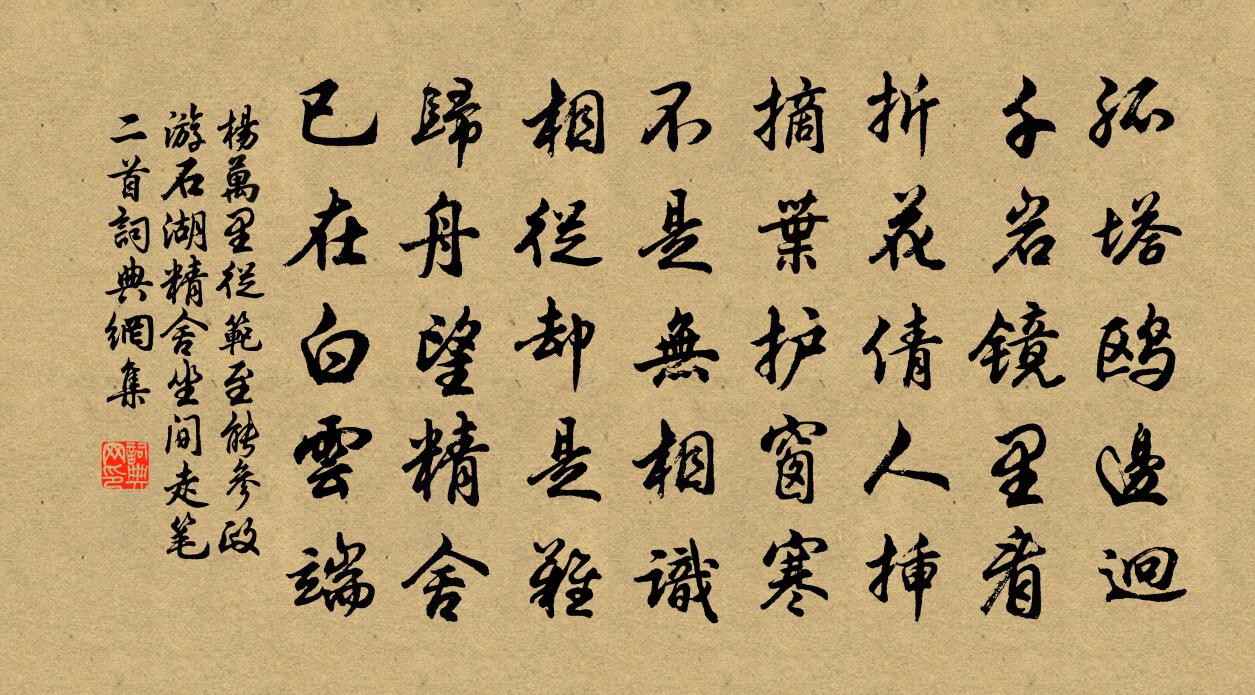 孤塔鸥邊迥
千岩镜里看
折花倩人挿
摘葉护窗寒
不是無相識
相從却是難
歸舟望精舍
已在白雲端
楊萬里從範至能參政
游石湖精舍坐间走笔
二首詞典網集
詞典网印